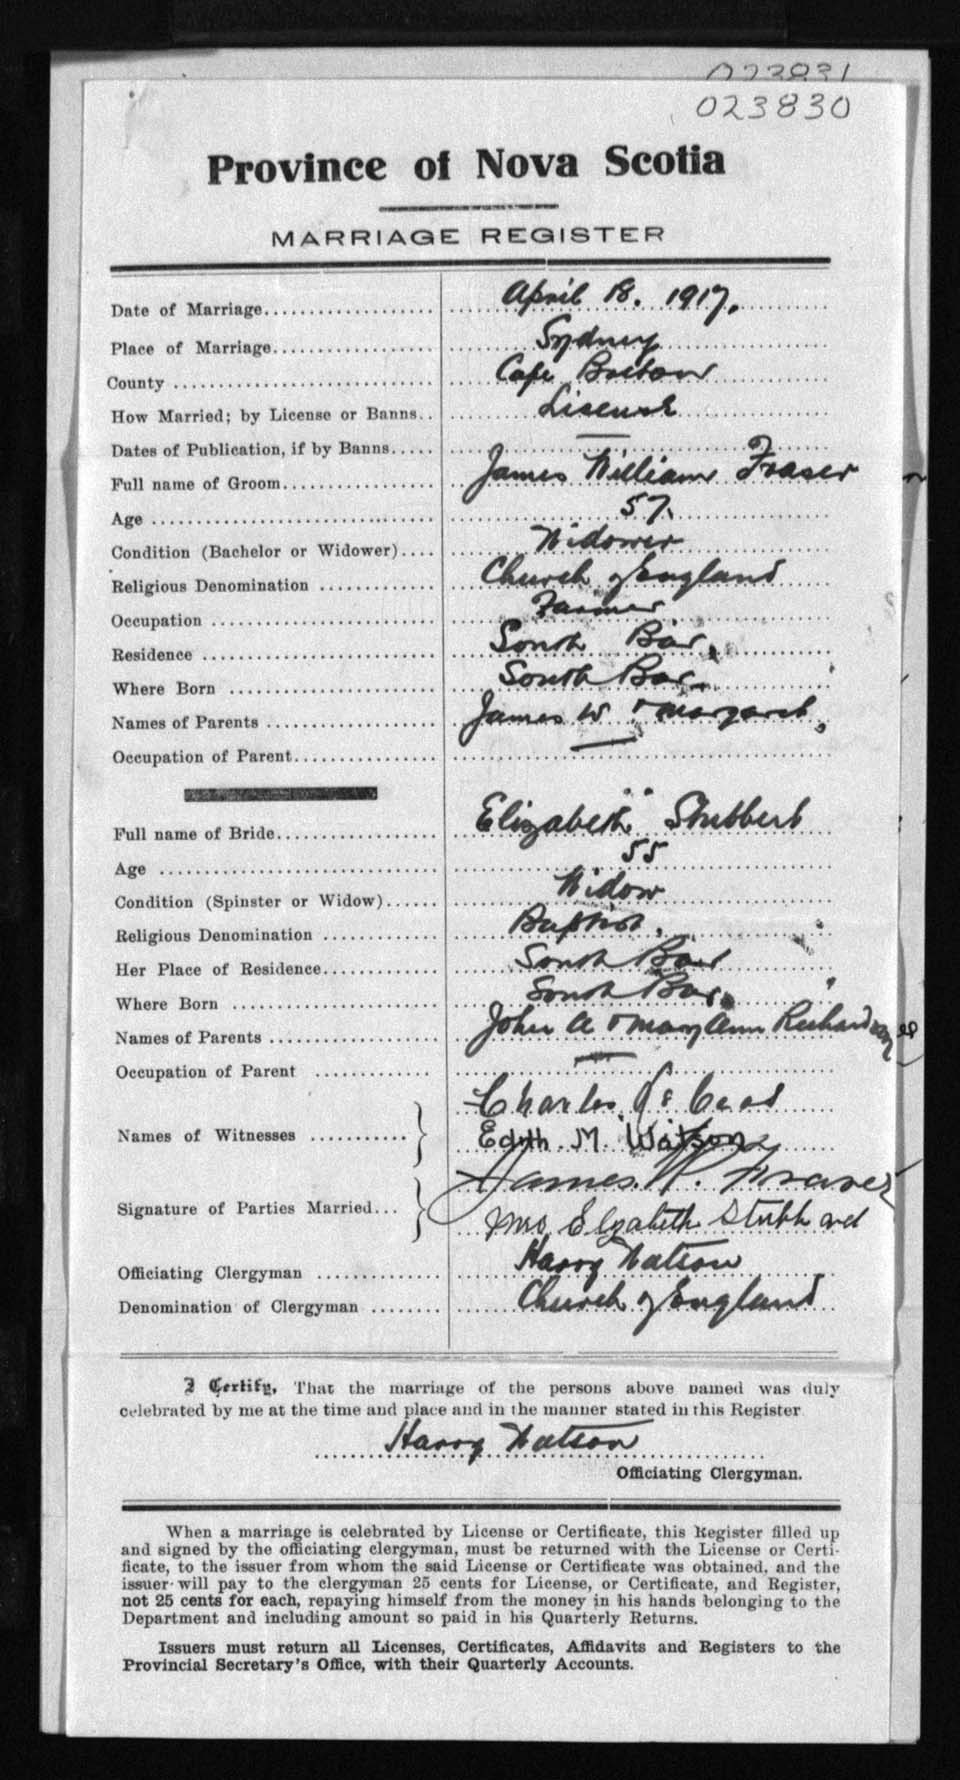 023831
023830
Province of Nova Scotia
MARRIAGE REGISTER
Date of Marriage.................... April 18. 1917.
Place of Marriage.................... Sydney
County .................... Cape Breton
How Married; by License or Banns.. Lisense
Dates of Publication, if by Banns..... —
Full name of Groom.................... James William Fraser
Age .................... 57.
Condition (Bachelor or Widower).... Widower
Religious Denomination ............ Church of England
Occupation .................... Farmer
Residence .................... South Bar.
Where Born .................... South Bar.
Names of Parents .................... James W + Margaret,
Occupation of Parent.................... —
Full name of Bride.................... Elizabeth Stubbert
Age .................... 55
Condition (Spinster or Widow)...... Widow
Religious Denomination ............ Baptist.
Her Place of Residence............ South Bar
Where Born .................... South Bar.
Names of Parents .................... John A + Mary Ann Richardson
Occupation of Parent ............ —
Charles
Names of Witnesses ........... } Edith M. Watson
James W. Fraser
Signature of Parties Married... } Mrs Elizabeth Stubbard
Officiating Clergyman ............ Harry Watson
Denomination of Clergyman ........ Church of England
I Certify, That the marriage of the persons above named was duly
celebrated by me at the time and place and in the manner stated in this Register
Harry Watson
Officiating Clergyman.
When a marriage is celebrated by License or Certificate, this Register filled up
and signed by the officiating clergyman, must be returned with the License or Certi-
ficate, to the issuer from whom the said License or Certificate was obtained, and the
issuer will pay to the clergyman 25 cents for License, or Certificate, and Register,
not 25 cents for each, repaying himself from the money in his hands belonging to the
Department and including amount so paid in his Quarterly Returns.
Issuers must return all Licenses, Certificates, Affidavits and Registers to the
Provincial Secretary's Office, with their Quarterly Accounts.